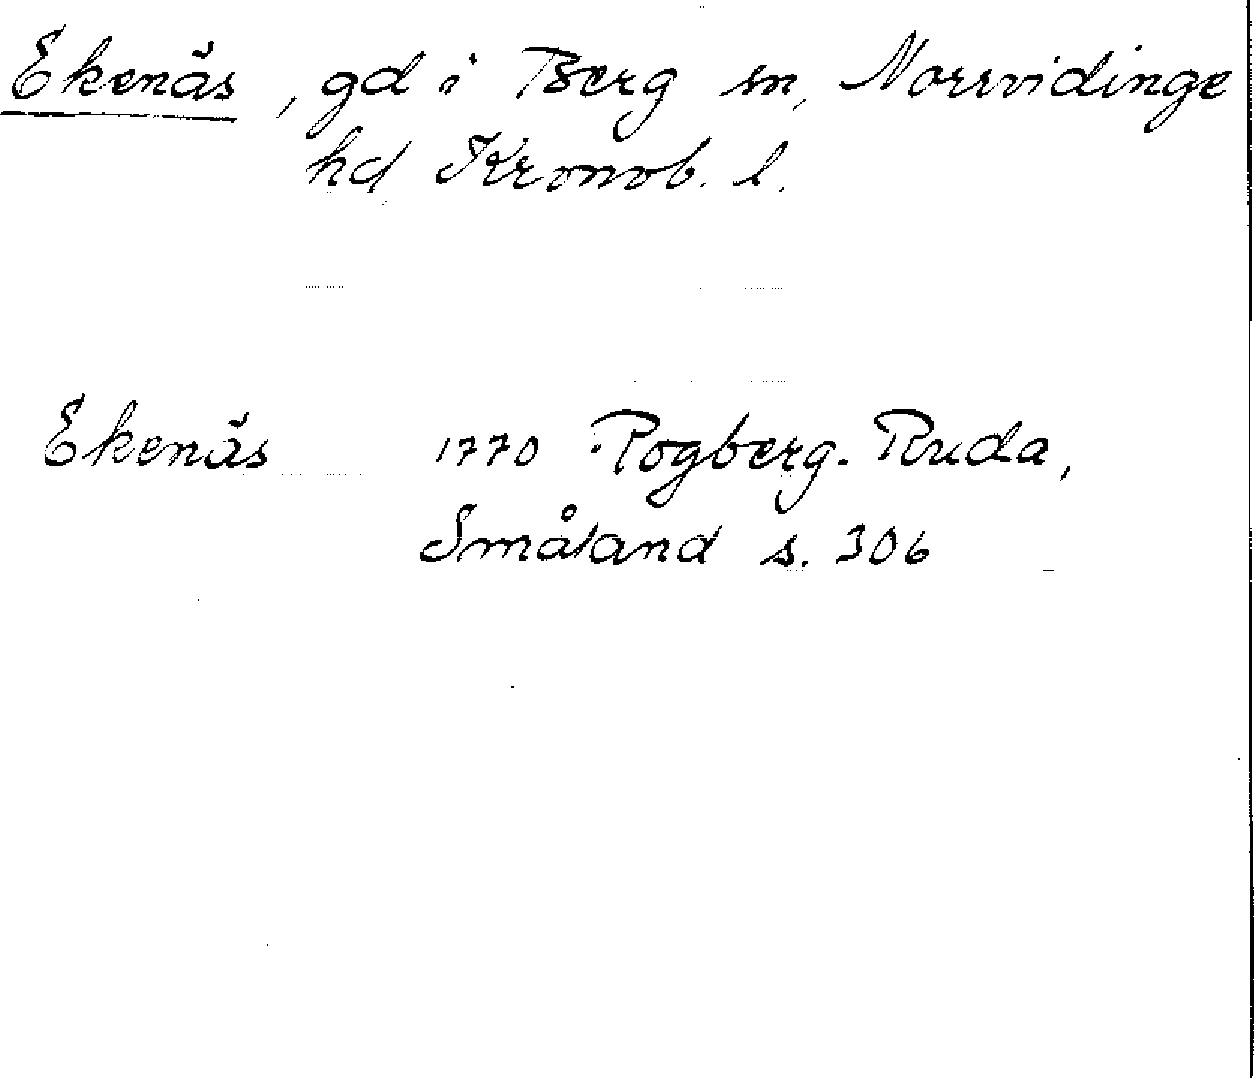 Ekenäs, gd i Berg sn, Norrvidinge
hd Kronob. l.
Ekenäs 1770 Rogberg. Ruda,
Småland s. 306